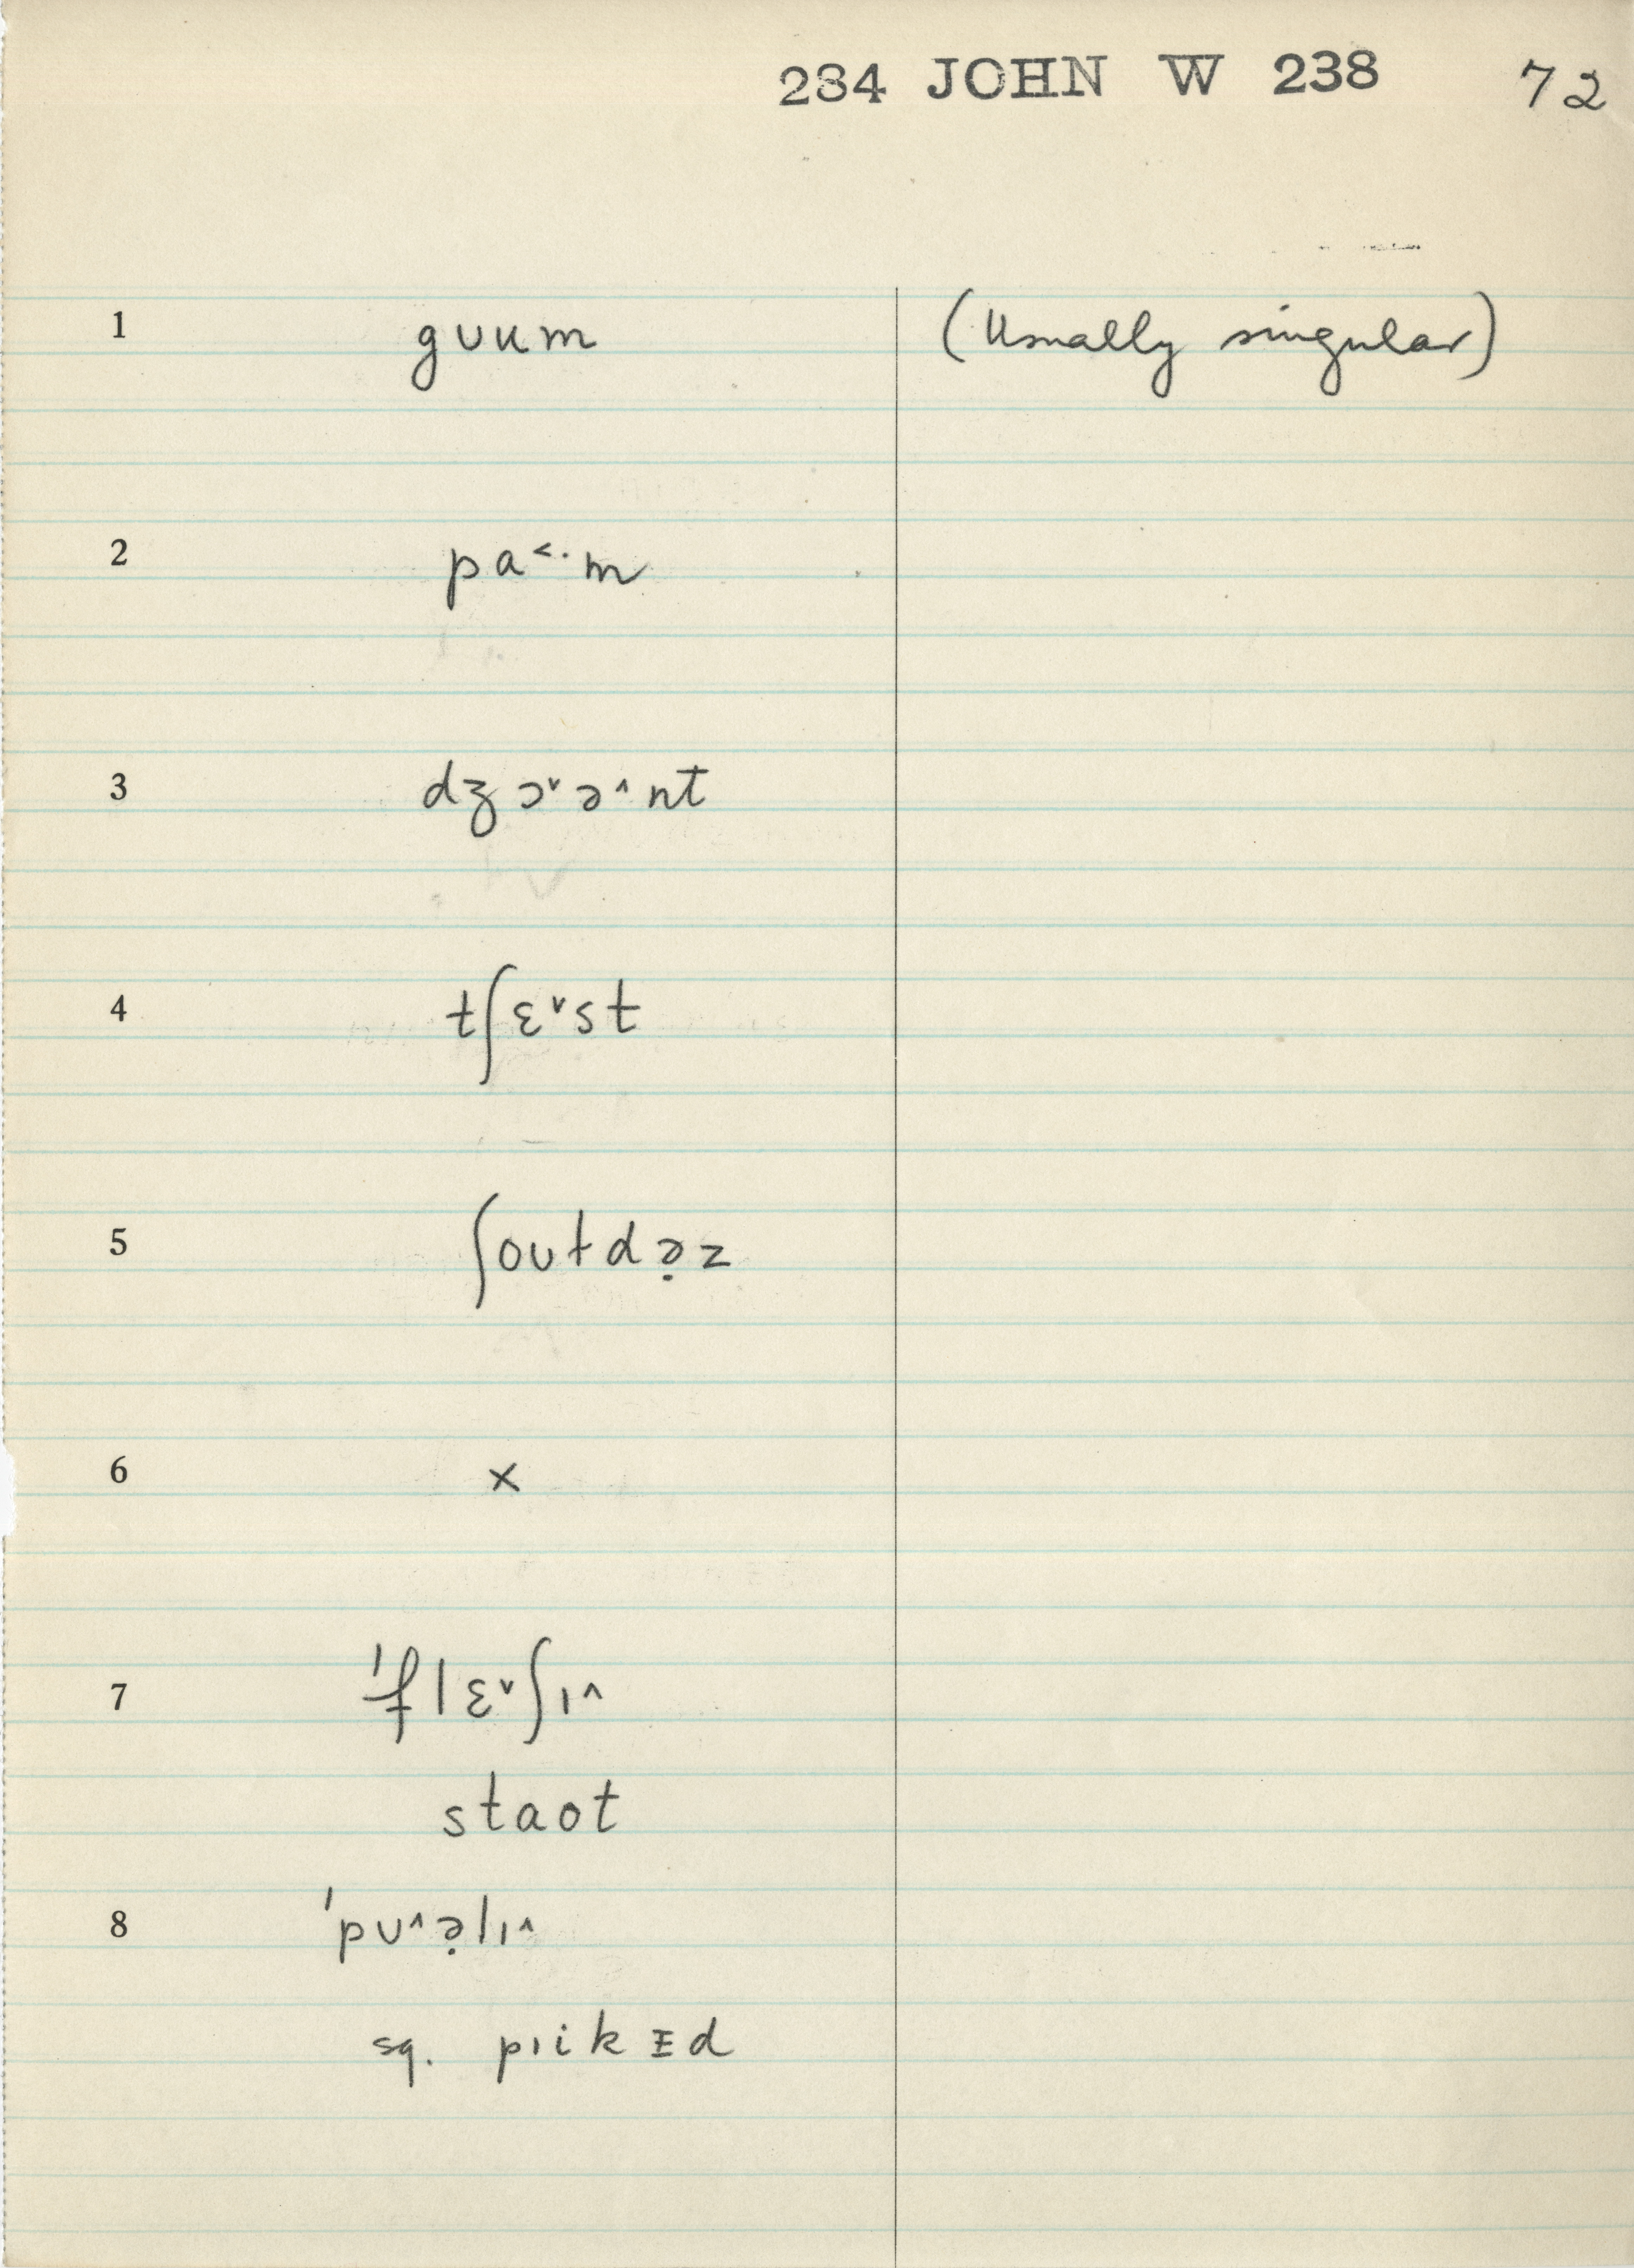 284 JOHN W 238 72
1 gʊum (Usually singular)
2 pa˂·m
3 dʒɔ˅ə˄nt
4 tʃɛ˅st
5 ʃoʊtdə̣z
6 x
7 ˈflɛ˅ʃɪ˄
staot
8 ˈpʊ˄ə̣lɪ˄
sq. pɪikᵻd